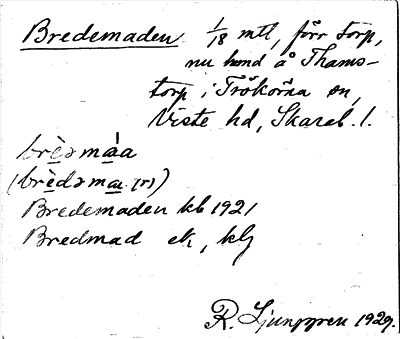 Bredemaden 1/18 mtl, förr torp,
nu hmd å Thams-
torp i Trökörna sn,
Viste hd, Skarab. l.
brèəmàa
(brèdəma
Bredemaden kb 1921
Bredmad ek, klj
R. Ljunggren 1929.